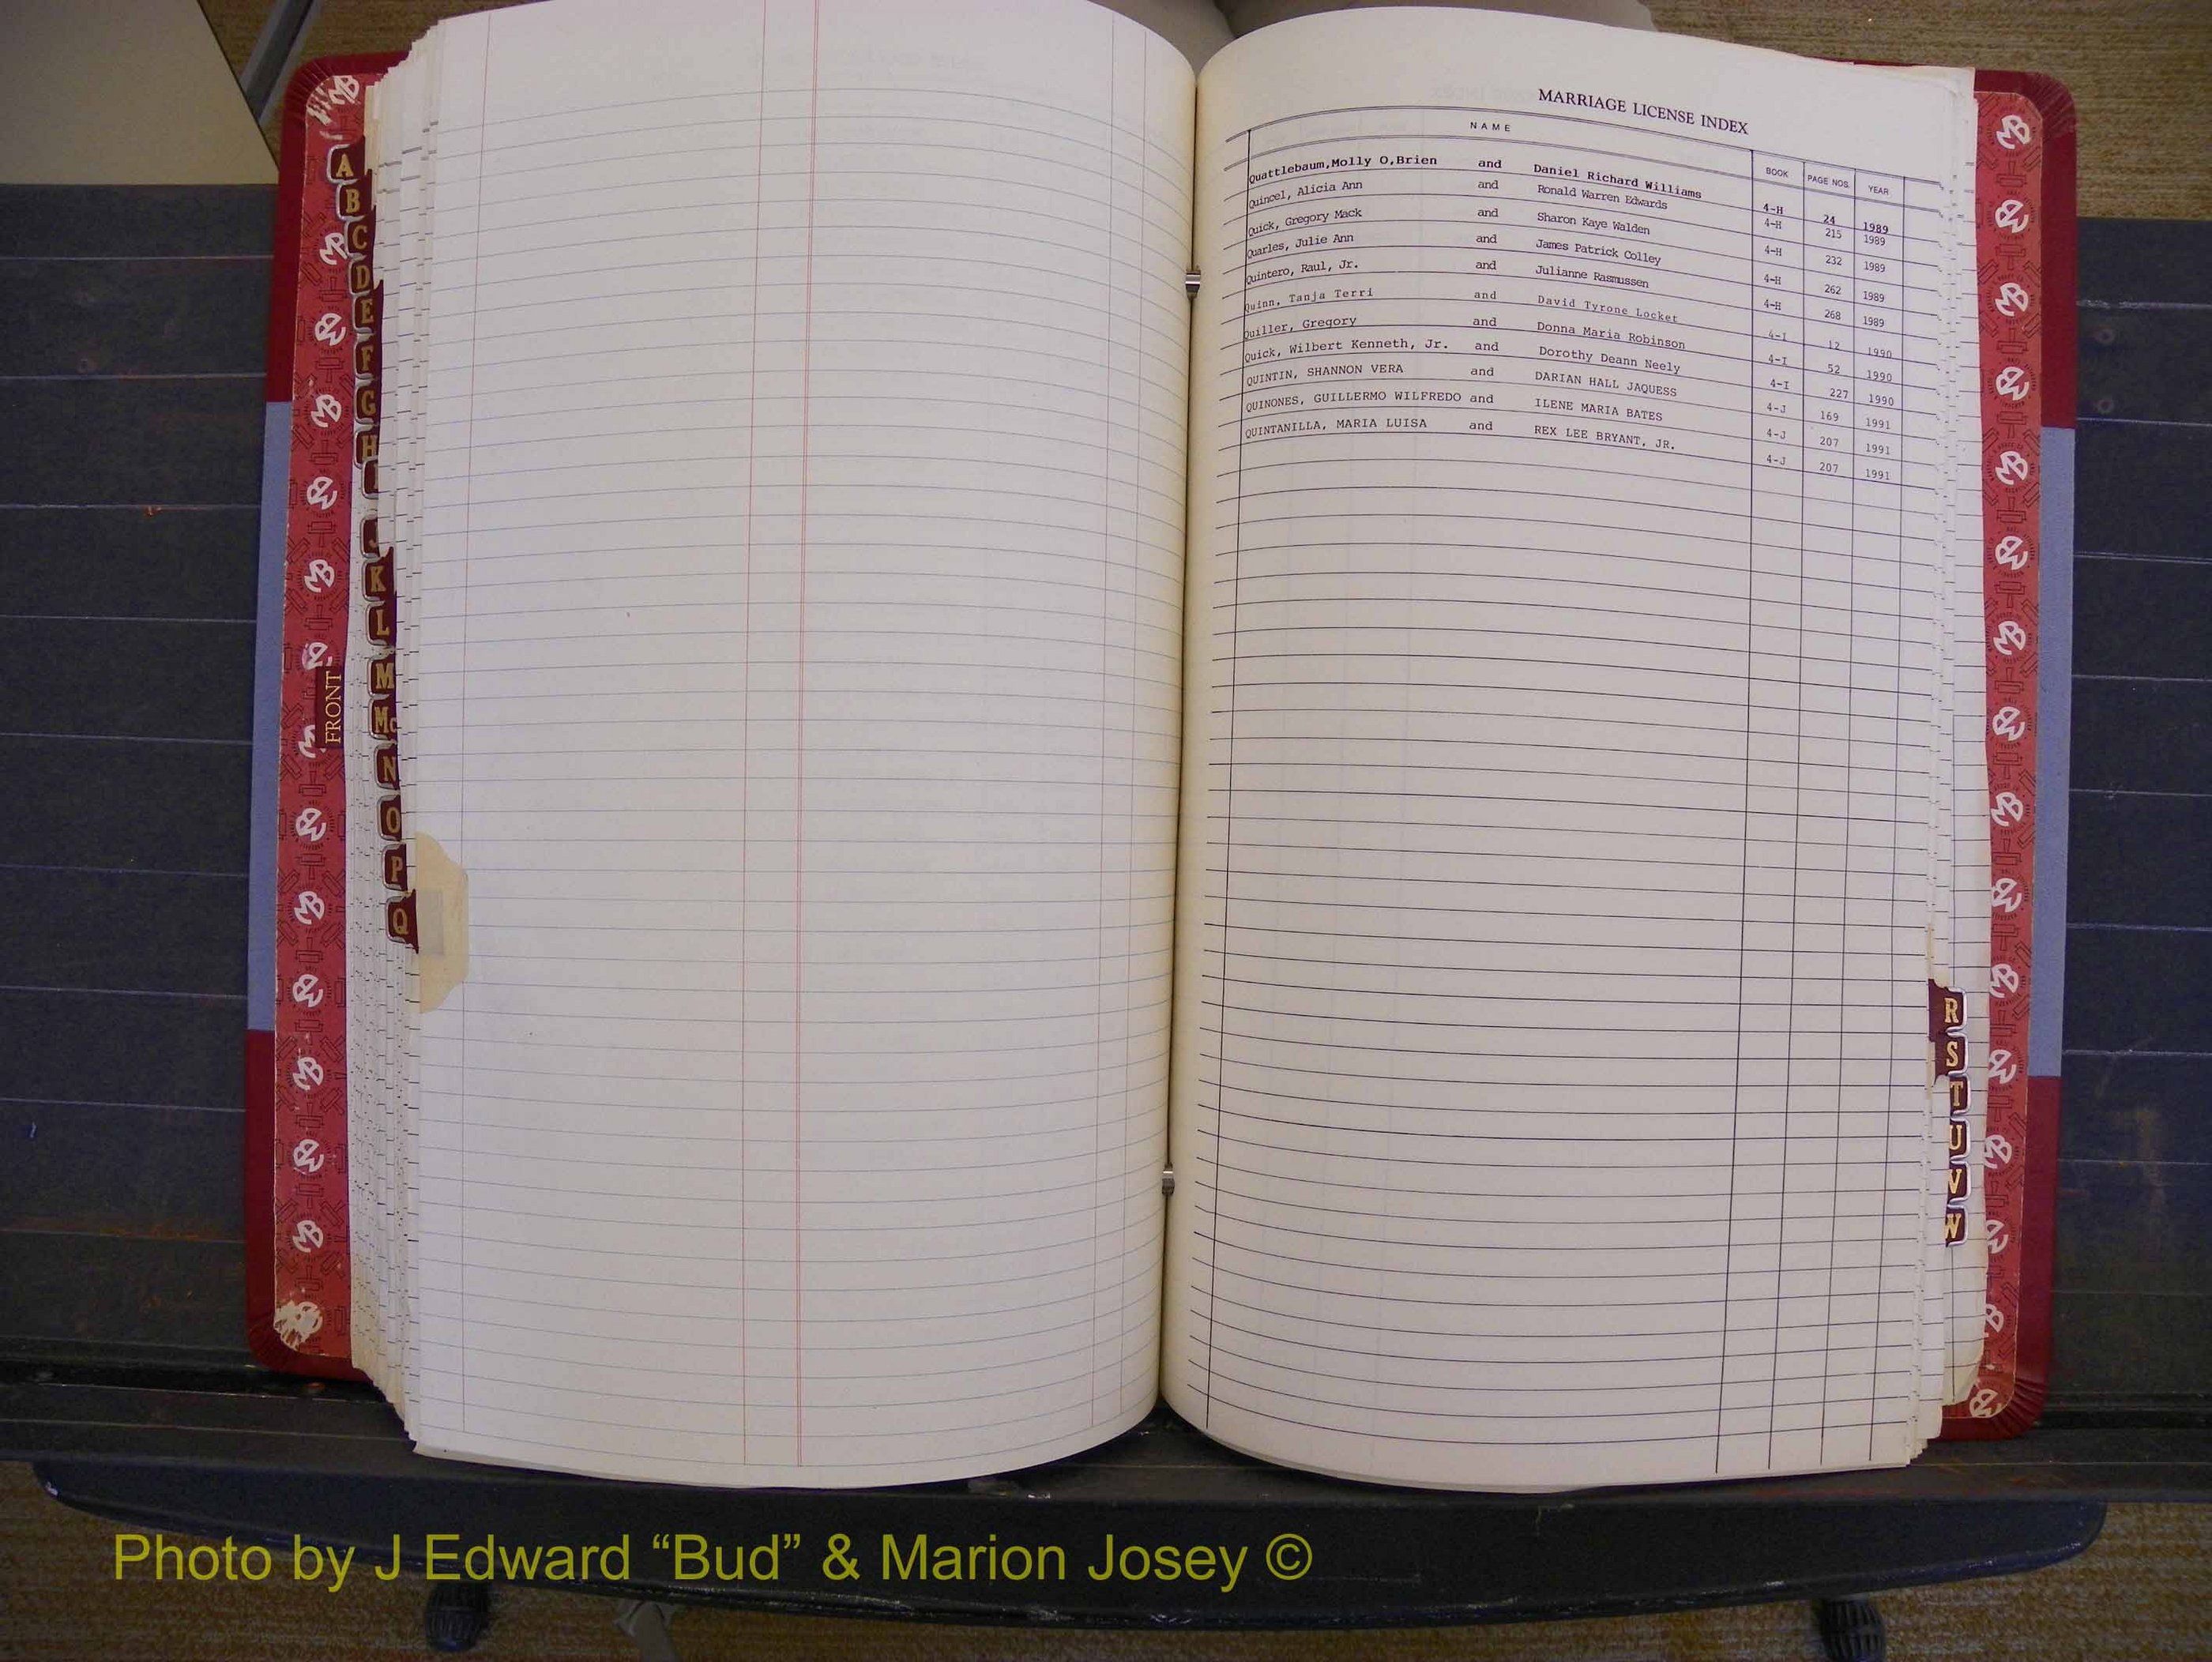 MARRIAGE LICENSE INDEX
NAME BOOK PAGE NOS. YEAR
Quattlebaum,Molly O,Brien and Daniel Richard Williams 4-H 24 1989
Quincel, Alicia Ann and Ronald Warren Edwards 4-H 215 1989
Quick, Gregory Mack and Sharon Kaye Walden 4-H 232 1989
Quarles, Julie Ann and James Patrick Colley 4-H 262 1989
Quintero, Raul, Jr. and Julianne Rasmussen 4-H 268 1989
Quinn, Tanja Terri and David Tyrone Locket 4-I 12 1990
Quiller, Gregory and Donna Maria Robinson 4-I 52 1990
Quick, Wilbert Kenneth, Jr. and Dorothy Deann Neely 4-I 227 1990
QUINTIN, SHANNON VERA and DARIAN HALL JAQUESS 4-J 169 1991
QUINONES, GUILLERMO WILFREDO and ILENE MARIA BATES 4-J 207 1991
QUINTANILLA, MARIA LUISA and REX LEE BRYANT, JR. 4-J 207 1991
A
B
C
D
E
F
G
H
I
J
K
L
M
Mc
N
O
P
Q
FRONT
R
S
T
U
V
W
Photo by J Edward “Bud” & Marion Josey ©